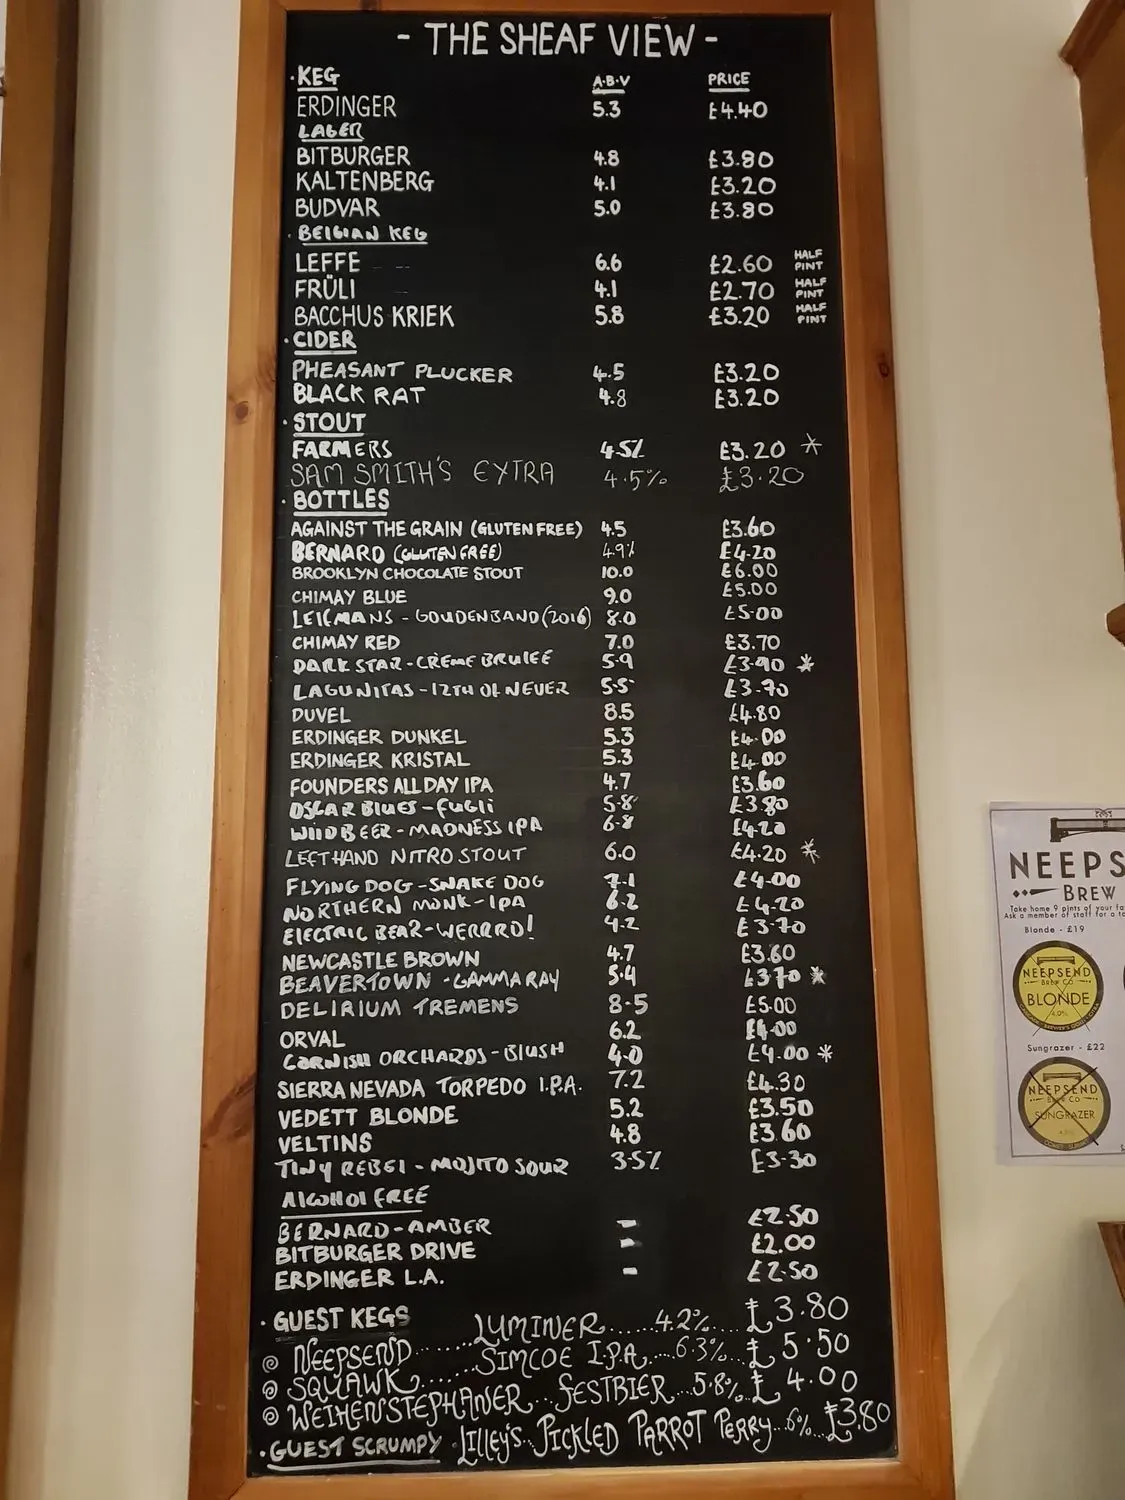 - THE SHEAF VIEW -
· KEG A·B·V PRICE
ERDINGER 5.3 £4.40
LAGER
BITBURGER 4.8 £3.80
KALTENBERG 4.1 £3.20
BUDVAR 5.0 £3.80
· BELGIAN KEG
LEFFE 6.6 £2.60 HALF PINT
FRÜLI 4.1 £2.70 HALF PINT
BACCHUS KRIEK 5.8 £3.20 HALF PINT
· CIDER
PHEASANT PLUCKER 4.5 £3.20
BLACK RAT 4.8 £3.20
· STOUT
FARMERS 4.5% £3.20 *
SAM SMITH'S EXTRA 4.5% £3.20
· BOTTLES
AGAINST THE GRAIN (GLUTEN FREE) 4.5 £3.60
BERNARD (GLUTEN FREE) 4.9% £4.20
BROOKLYN CHOCOLATE STOUT 10.0 £6.00
CHIMAY BLUE 9.0 £5.00
LEIFMANS - GOUDENBAND (2016) 8.0 £5.00
CHIMAY RED 7.0 £3.70
DARK STAR - CRÈME BRULEÉ 5.9 £3.90 *
LAGUNITAS - 12TH OF NEVER 5.5 £3.70
DUVEL 8.5 £4.80
ERDINGER DUNKEL 5.3 £4.00
ERDINGER KRISTAL 5.3 £4.00
FOUNDERS ALL DAY IPA 4.7 £3.60
OSCAR BLUES - FUGLI 5.8 £3.80
WILD BEER - MADNESS IPA 6.8 £4.20
LEFTHAND NITRO STOUT 6.0 £4.20 *
FLYING DOG - SNAKE DOG 7.1 £4.00
NORTHERN MONK - IPA 6.2 £4.20
ELECTRIC BEAR - WERRRD! 4.2 £3.70
NEWCASTLE BROWN 4.7 £3.60
BEAVERTOWN - GAMMA RAY 5.4 £3.70 *
DELIRIUM TREMENS 8.5 £5.00
ORVAL 6.2 £4.00
CORNISH ORCHARDS - BLUSH 4.0 £4.00 *
SIERRA NEVADA TORPEDO I.P.A. 7.2 £4.30
VEDETT BLONDE 5.2 £3.50
VELTINS 4.8 £3.60
TINY REBEL - MOJITO SOUR 3.5% £3.30
ALCOHOL FREE
BERNARD - AMBER - £2.50
BITBURGER DRIVE - £2.00
ERDINGER L.A. - £2.50
· GUEST KEGS
NEEPSEND ...... LUMINER ...... 4.2% ... £3.80
SQUAWK ...... SIMCOE I.P.A. .... 6.3% ... £5.50
WEIHENSTEPHANER ... FESTBIER ... 5.8% £4.00
· GUEST SCRUMPY · LILLEY'S .. PICKLED PARROT PERRY .. 6% ... £3.80
NEEPS
BREW
Take home 9 pints of your fa
Ask a member of staff for a t
Blonde - £19
NEEPSEND
BREW CO
BLONDE
4.0%
Sungrazer - £22
NEEPSEND
BREW CO
SUNGRAZER